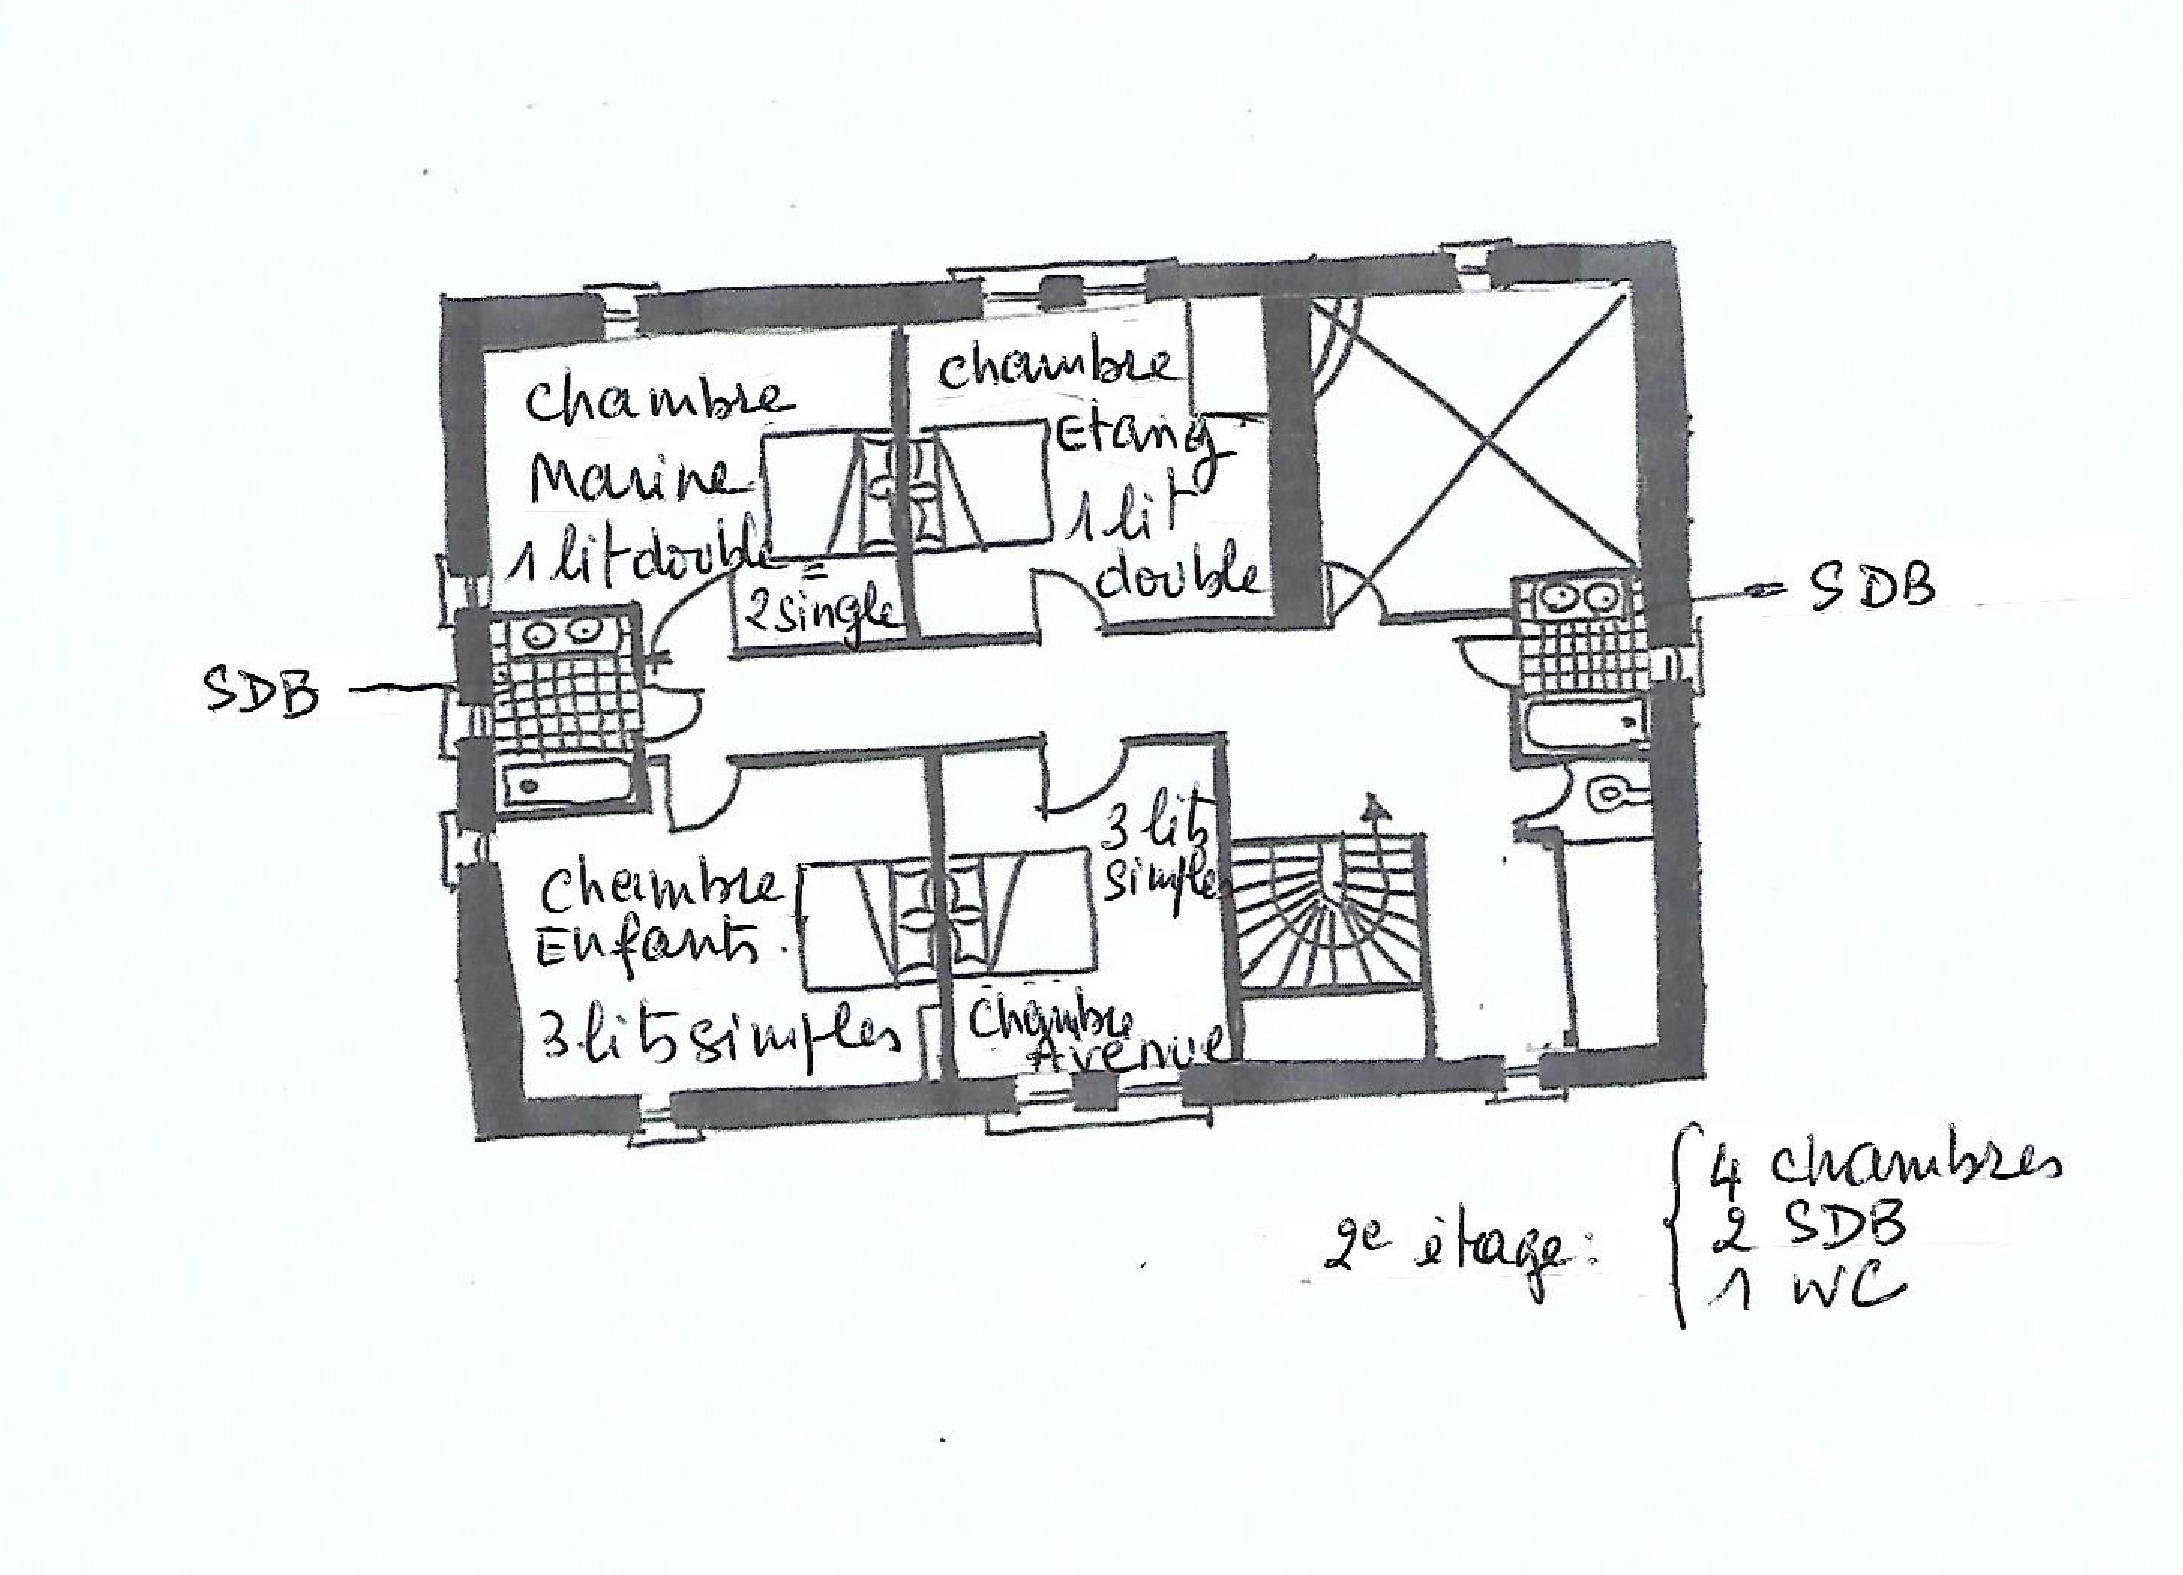 chambre
Marine
1 lit double
=
2 single
chambre
Etang
1 lit
double
SDB
SDB
3 lits
simples
chambre
Avenue
chambre
Enfants.
3 lits simples
2e étage:
4 chambres
2 SDB
1 WC